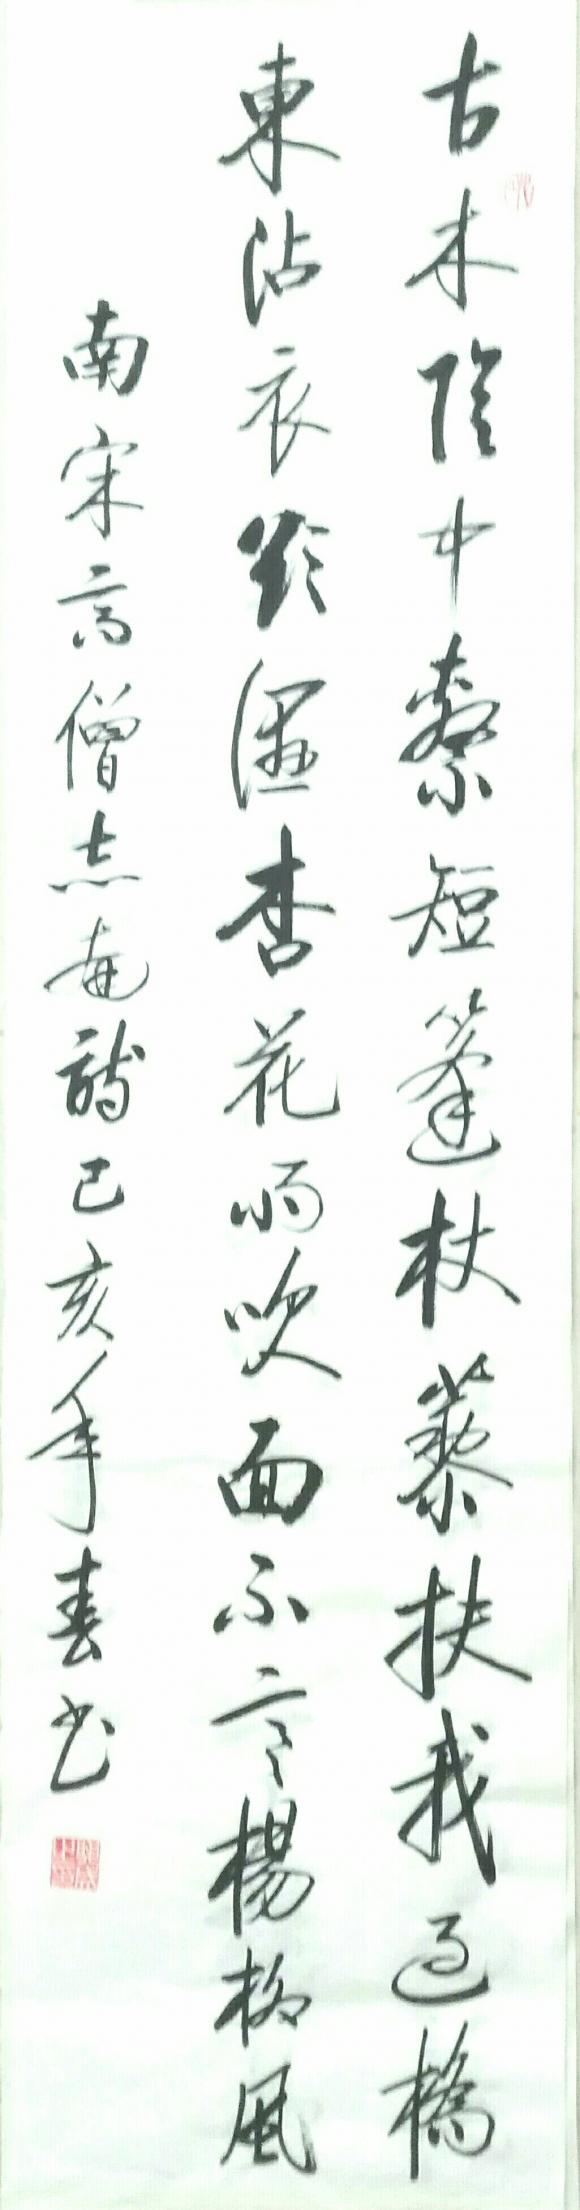 古木陰中繫短篷杖藜扶我過橋
東沾衣欲濕杏花雨吹面不寒楊柳風
南宋高僧志南詩己亥年春书